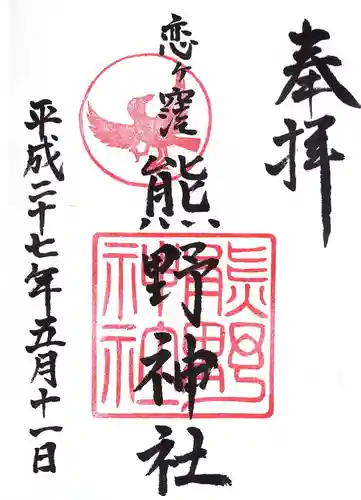 奉拝
恋ヶ窪
熊野神社
熊野神社
平成二十七年五月十一日